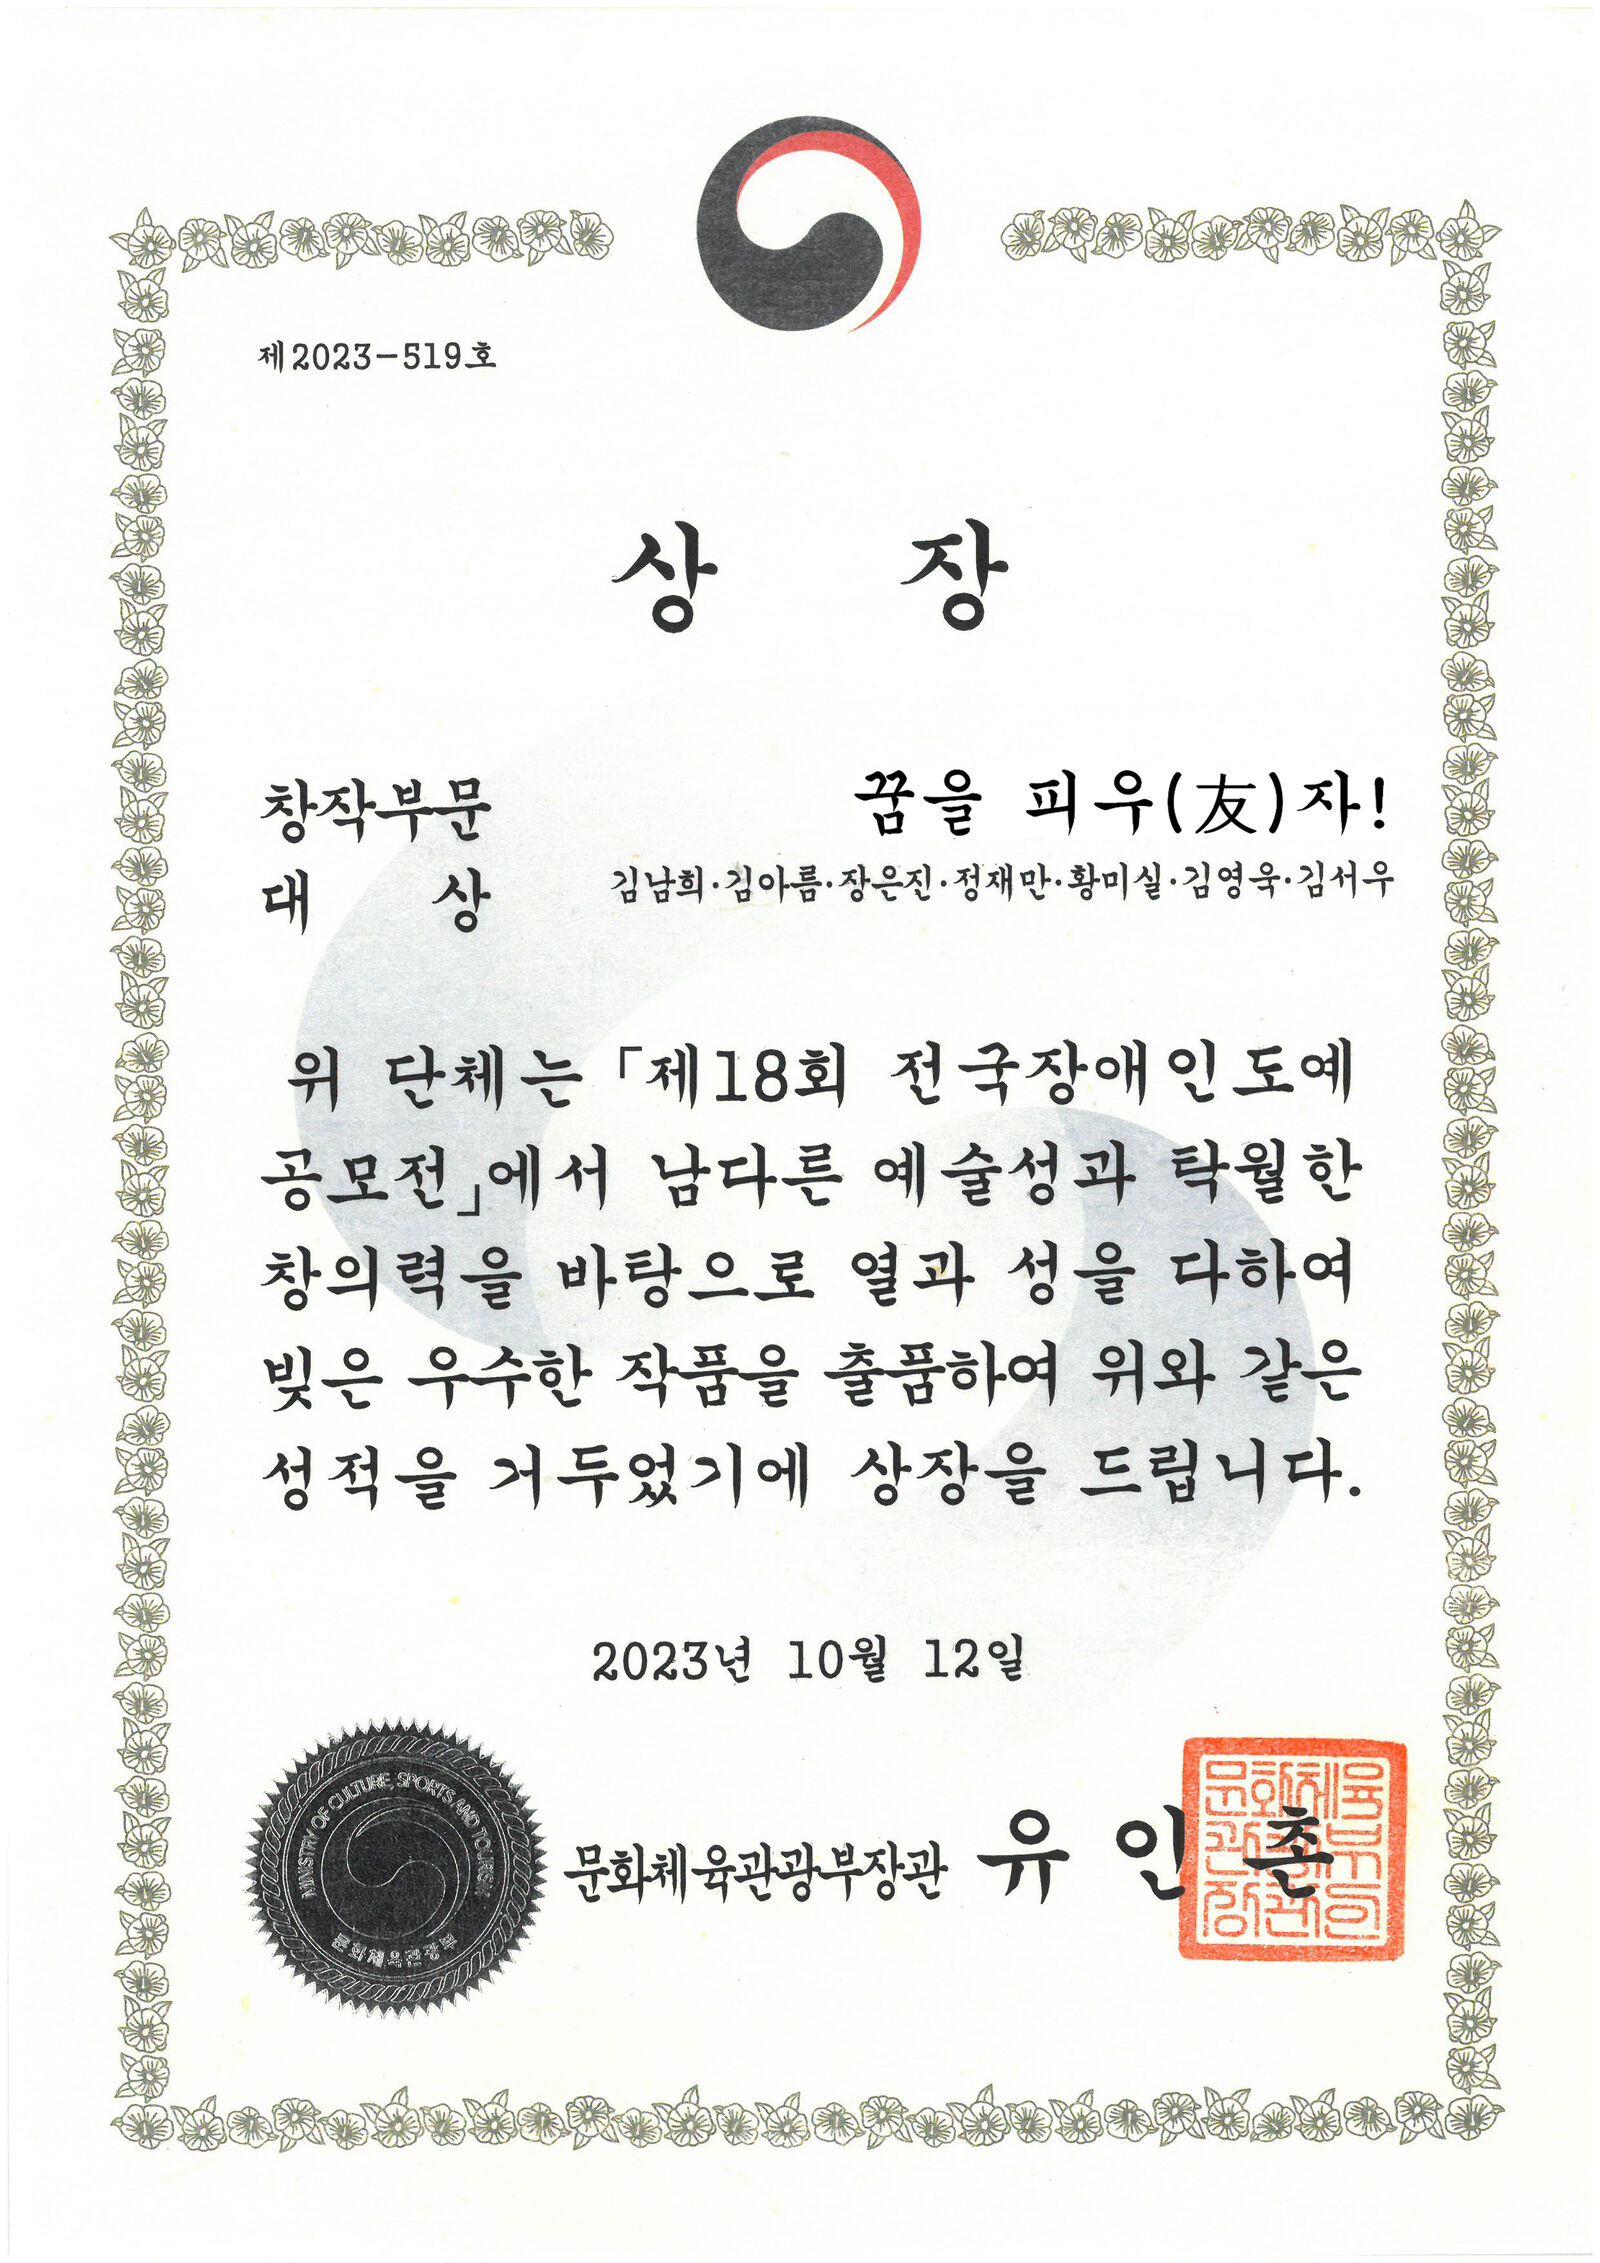 제2023-519호
상 장
창작부문
대 상
꿈을 피우(友)자!
김남희·김아름·장은진·정재만·황미실·김영욱·김서우
위 단체는 「제18회 전국장애인도예
공모전」에서 남다른 예술성과 탁월한
창의력을 바탕으로 열과 성을 다하여
빚은 우수한 작품을 출품하여 위와 같은
성적을 거두었기에 상장을 드립니다.
2023년 10월 12일
MINISTRY OF CULTURE, SPORTS AND TOURISM
문화체육관광부
문화체육관광부장관 유인촌
문화체육
관광부
장관의인